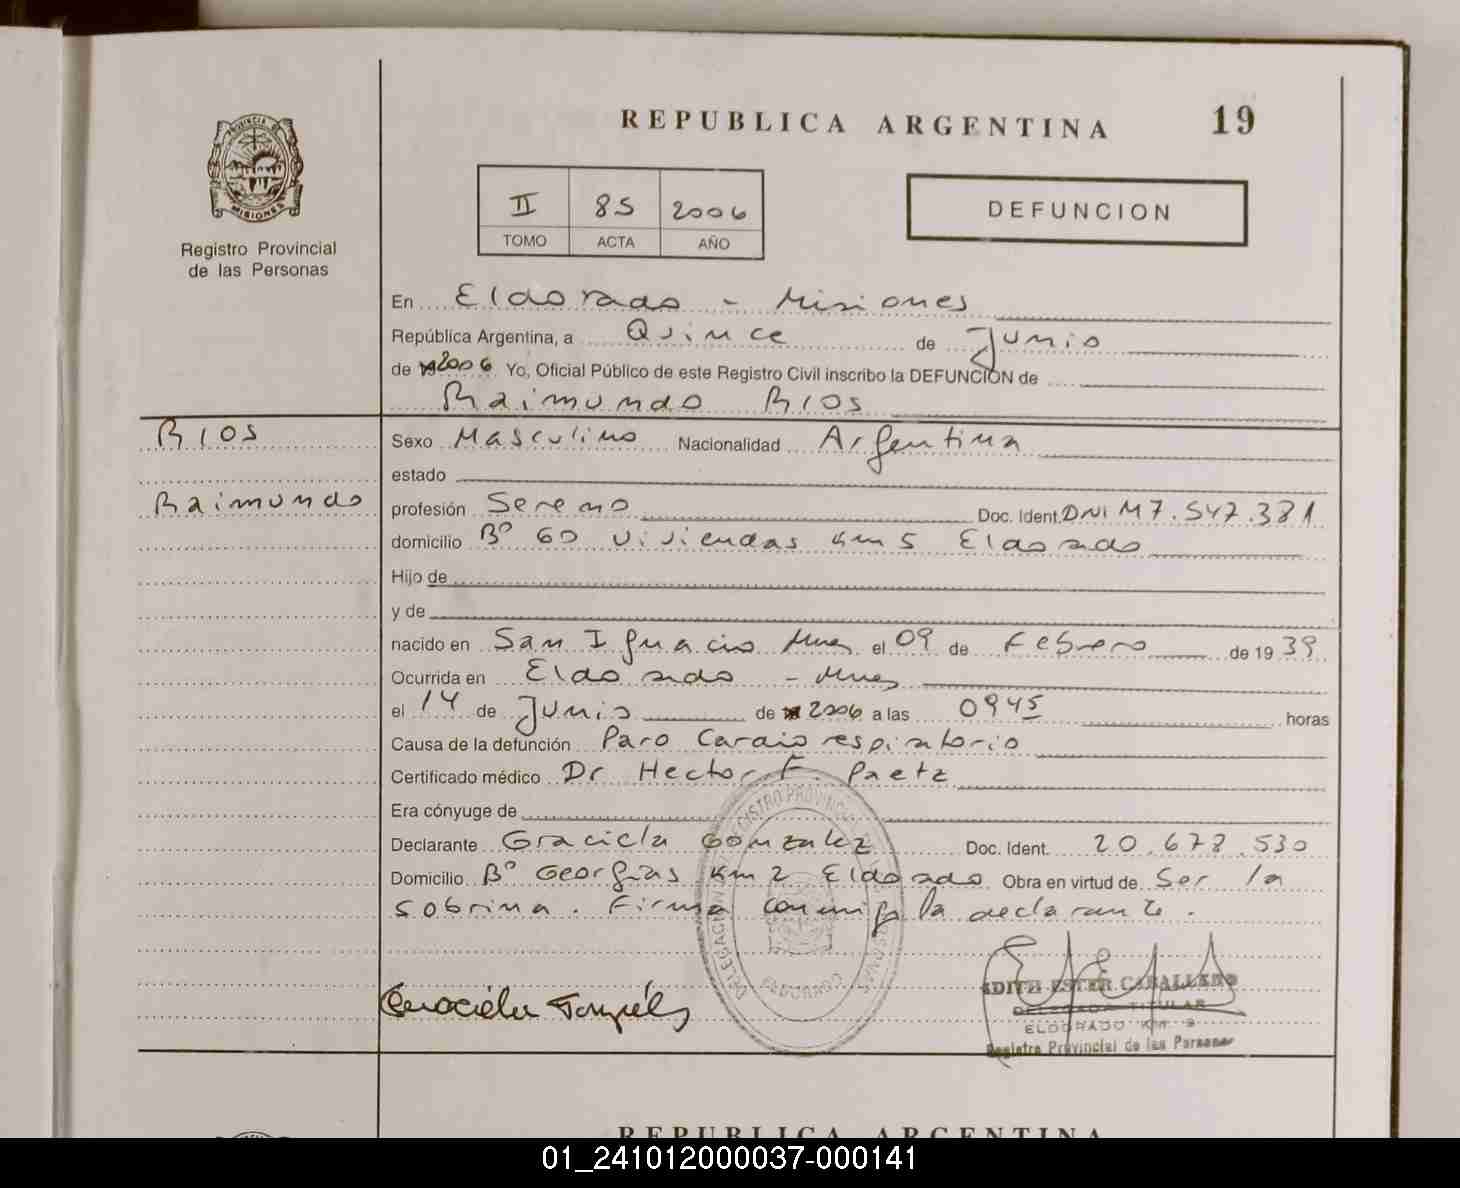 REPUBLICA ARGENTINA
19
PROVINCIA DE
MISIONES
Registro Provincial
de las Personas
II 85 2006
TOMO ACTA AÑO
DEFUNCION
En Eldorado - Misiones
República Argentina, a Quince de Junio
de 2006 Yo, Oficial Público de este Registro Civil inscribo la DEFUNCIÓN de
Raimundo RIOS
RIOS
Raimundo
Sexo Masculino Nacionalidad Argentina
estado
profesión Sereno Doc. Ident. DNI M7.547.381
domicilio Bº 60 viviendas Km 5 Eldorado
Hijo de
y de
nacido en San Ignacio Mnes el 09 de Febrero de 19 39
Ocurrida en Eldorado - Mnes
el 14 de Junio de 2006 a las 0945 horas
Causa de la defunción Paro Cardio respiratorio
Certificado médico Dr Hector F. Paetz
Era cónyuge de
Declarante Graciela Gonzalez Doc. Ident. 20.678.530
Domicilio Bº Georgias Km 2 Eldorado Obra en virtud de Ser la
sobrina. Firma conmigo la declarante.
ELDORADO
EDITH ESTER CABALLERO
DELEGADA TITULAR
ELDORADO KM. 9
Registro Provincial de las Personas
REPUBLICA ARGENTINA
01_241012000037-000141